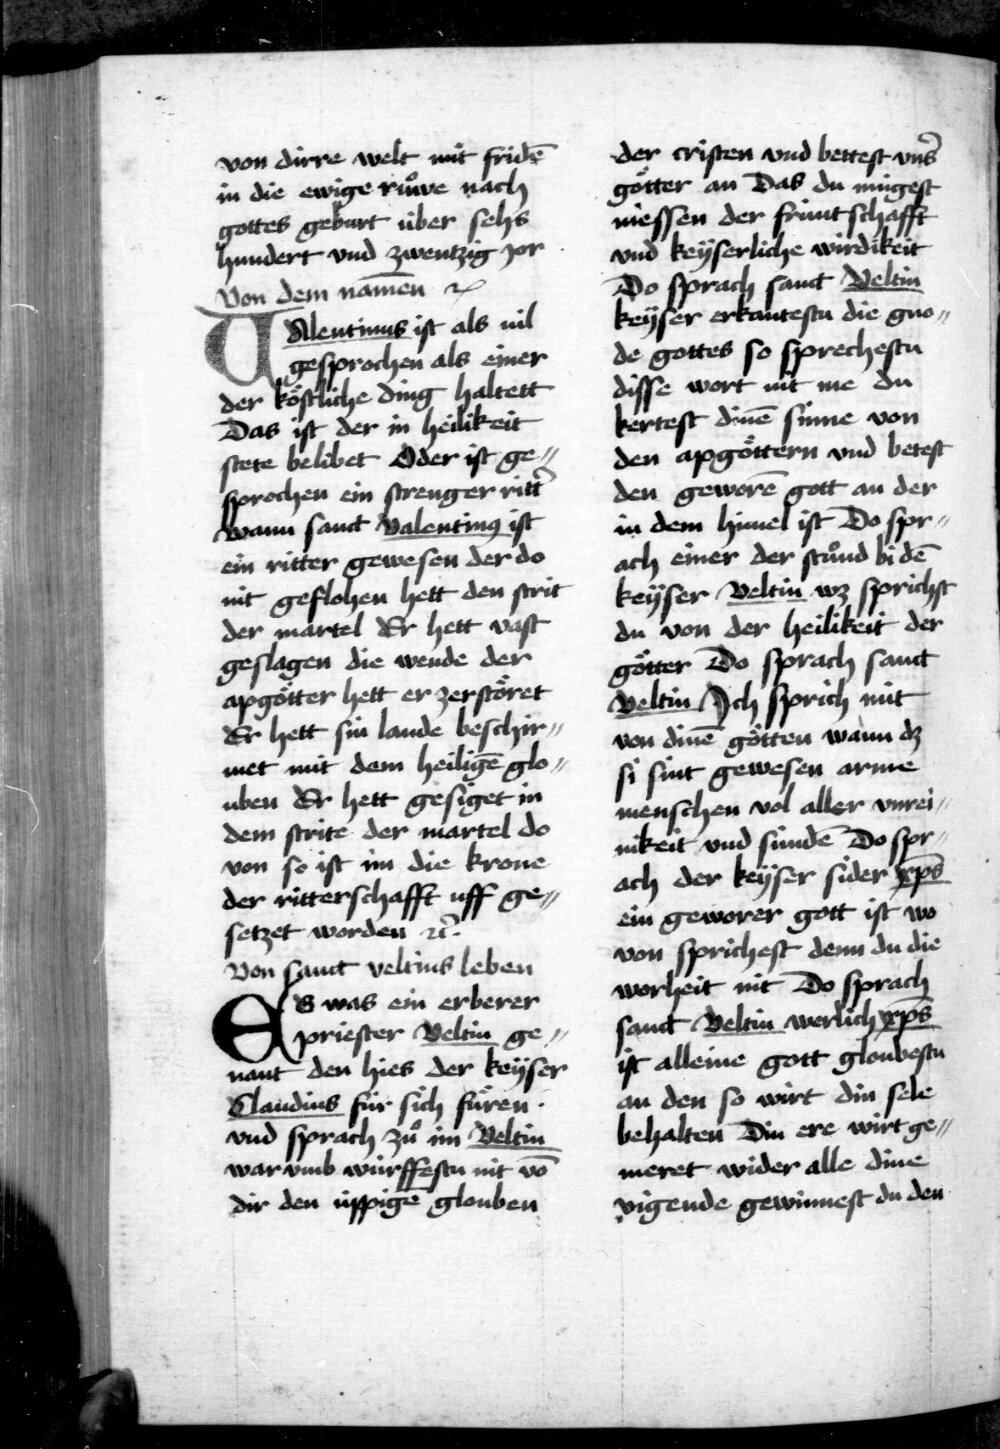 von dirre welt mit fridē
in die ewige růwe nach
gottes geburt über sehs
hundert vnd zwentzig jor
Von dem namen
Valentinus ist als uil
gesprochen als einer
der köstliche ding haltett
Das ist der in heilikeit
stete belibet Oder ist ge⸗
sprochen ein strenger ritt͛
wann sanct Valentinꝯ ist
ein ritter gewesen der do
nit geflohen hett den strit
der martel Er hett vast
geslagen die wende der
apgötter hett er zerstöret
Er hett sin lande beschir⸗
met mit dem heiligē glo⸗
uben Er hett gesiget in
dem strite der martel do
von so ist im die krone
der ritterschafft uff ge⸗
setzet worden ⁊c̄.
Von sanct veltins leben
Es was ein erberer
priester Veltin ge⸗
nant den hies der keyser
Claudius für sich füren .
vnd sprach zů im Veltin
war vmb würffestu nit vō
dir den üppigē glouben
der cristen vnd bettest vns͛
götter an Das du mügest
niessen der früntschafft
vnd keÿserliche wirdikeit
Do sprach sanct Veltin
keÿser erkantestu die gno⸗
de gottes so sprechestu
disse wort nit me du
kertest dinē sinne von
den apgöttern vnd betest
den geworē gott an der
in dem himel ist Do spr⸗
ach einer der stůnd bi dē
keÿser Veltin wz sprichst
du von der heilikeit der
götter Do sprach sanct
Veltin Ich sprich nüt
von dinē götten wann dz
si sint gewesen arme
menschen vol aller vnrei⸗
nikeit vnd sündē Do spr⸗
ach der keÿser sider xp̄s
ein geworer gott ist wo
von sprichest denn du die
worheit nit Do sprach
sanct Veltin werlich xp̄s
ist alleine gott gloubestu
an den so wirt din sele
behalten Din ere wirt ge⸗
meret wider alle dine
vigende gewinnest du den